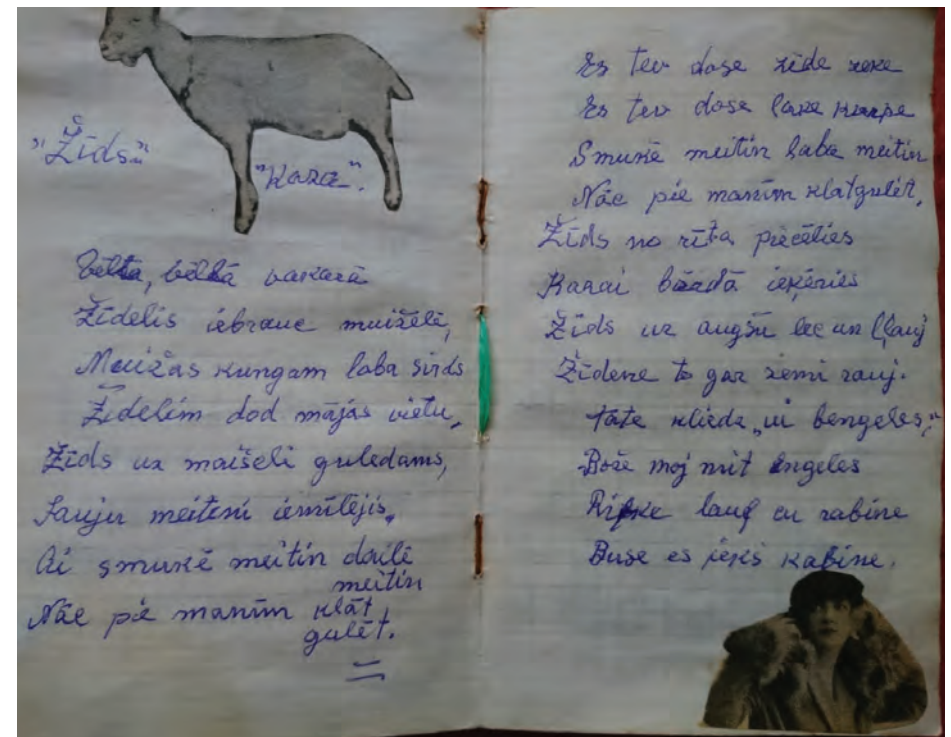 "Žīds"
"Kaza".
vēlā vakarā
Žīdelis iebrauc muiželē,
Muižas kungam laba sirds
Žīdelim dod mājas vietu,
Žīds uz maišeli guledams,
Sauju meiteni iemīlējis,
Ai smukē meitin dailē
meitin
Nāc pie manīm klāt
gulēt.
Es tev dose zīde zeķe
Es tev dose lake kurpe
Smukē meitin laba meitin
Nāc pie manīm klātgulēt,
Žīds no rīta piecēlies
Kazai bārdā ieķēries
Žīds uz augšu lec un ļļauj
Žīdene to gar zemi rauj.
Tate kliedz „ui bengeles,"
Bože moj mit engeles
Ripke lauf cu rabine
Buse es jēkš kabine.